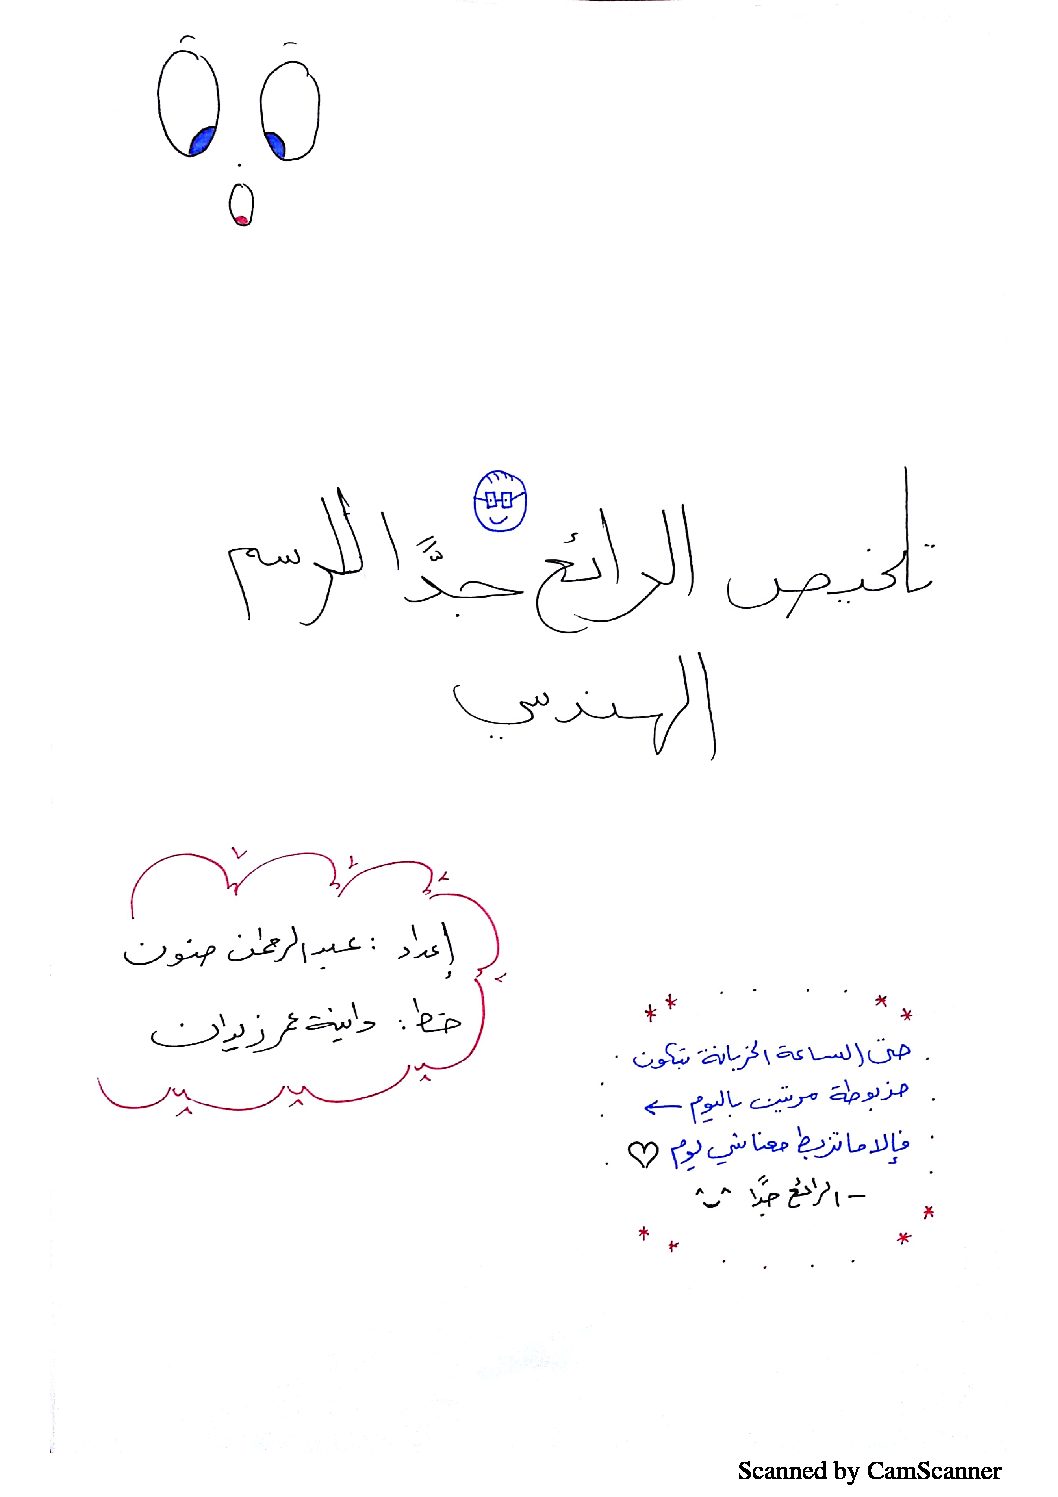 تلخيص الرائع جدًّا للرسم
الهندسي
إعداد : عبدالرحمٰن حنون
خط : دانية عمر زيدان
حتى الساعة الخربانة بتكون
مزبوطة مرتين باليوم ←
فإلا ما تزبط معنا شي يوم ♡
– الرائع جدًّا
Scanned by CamScanner